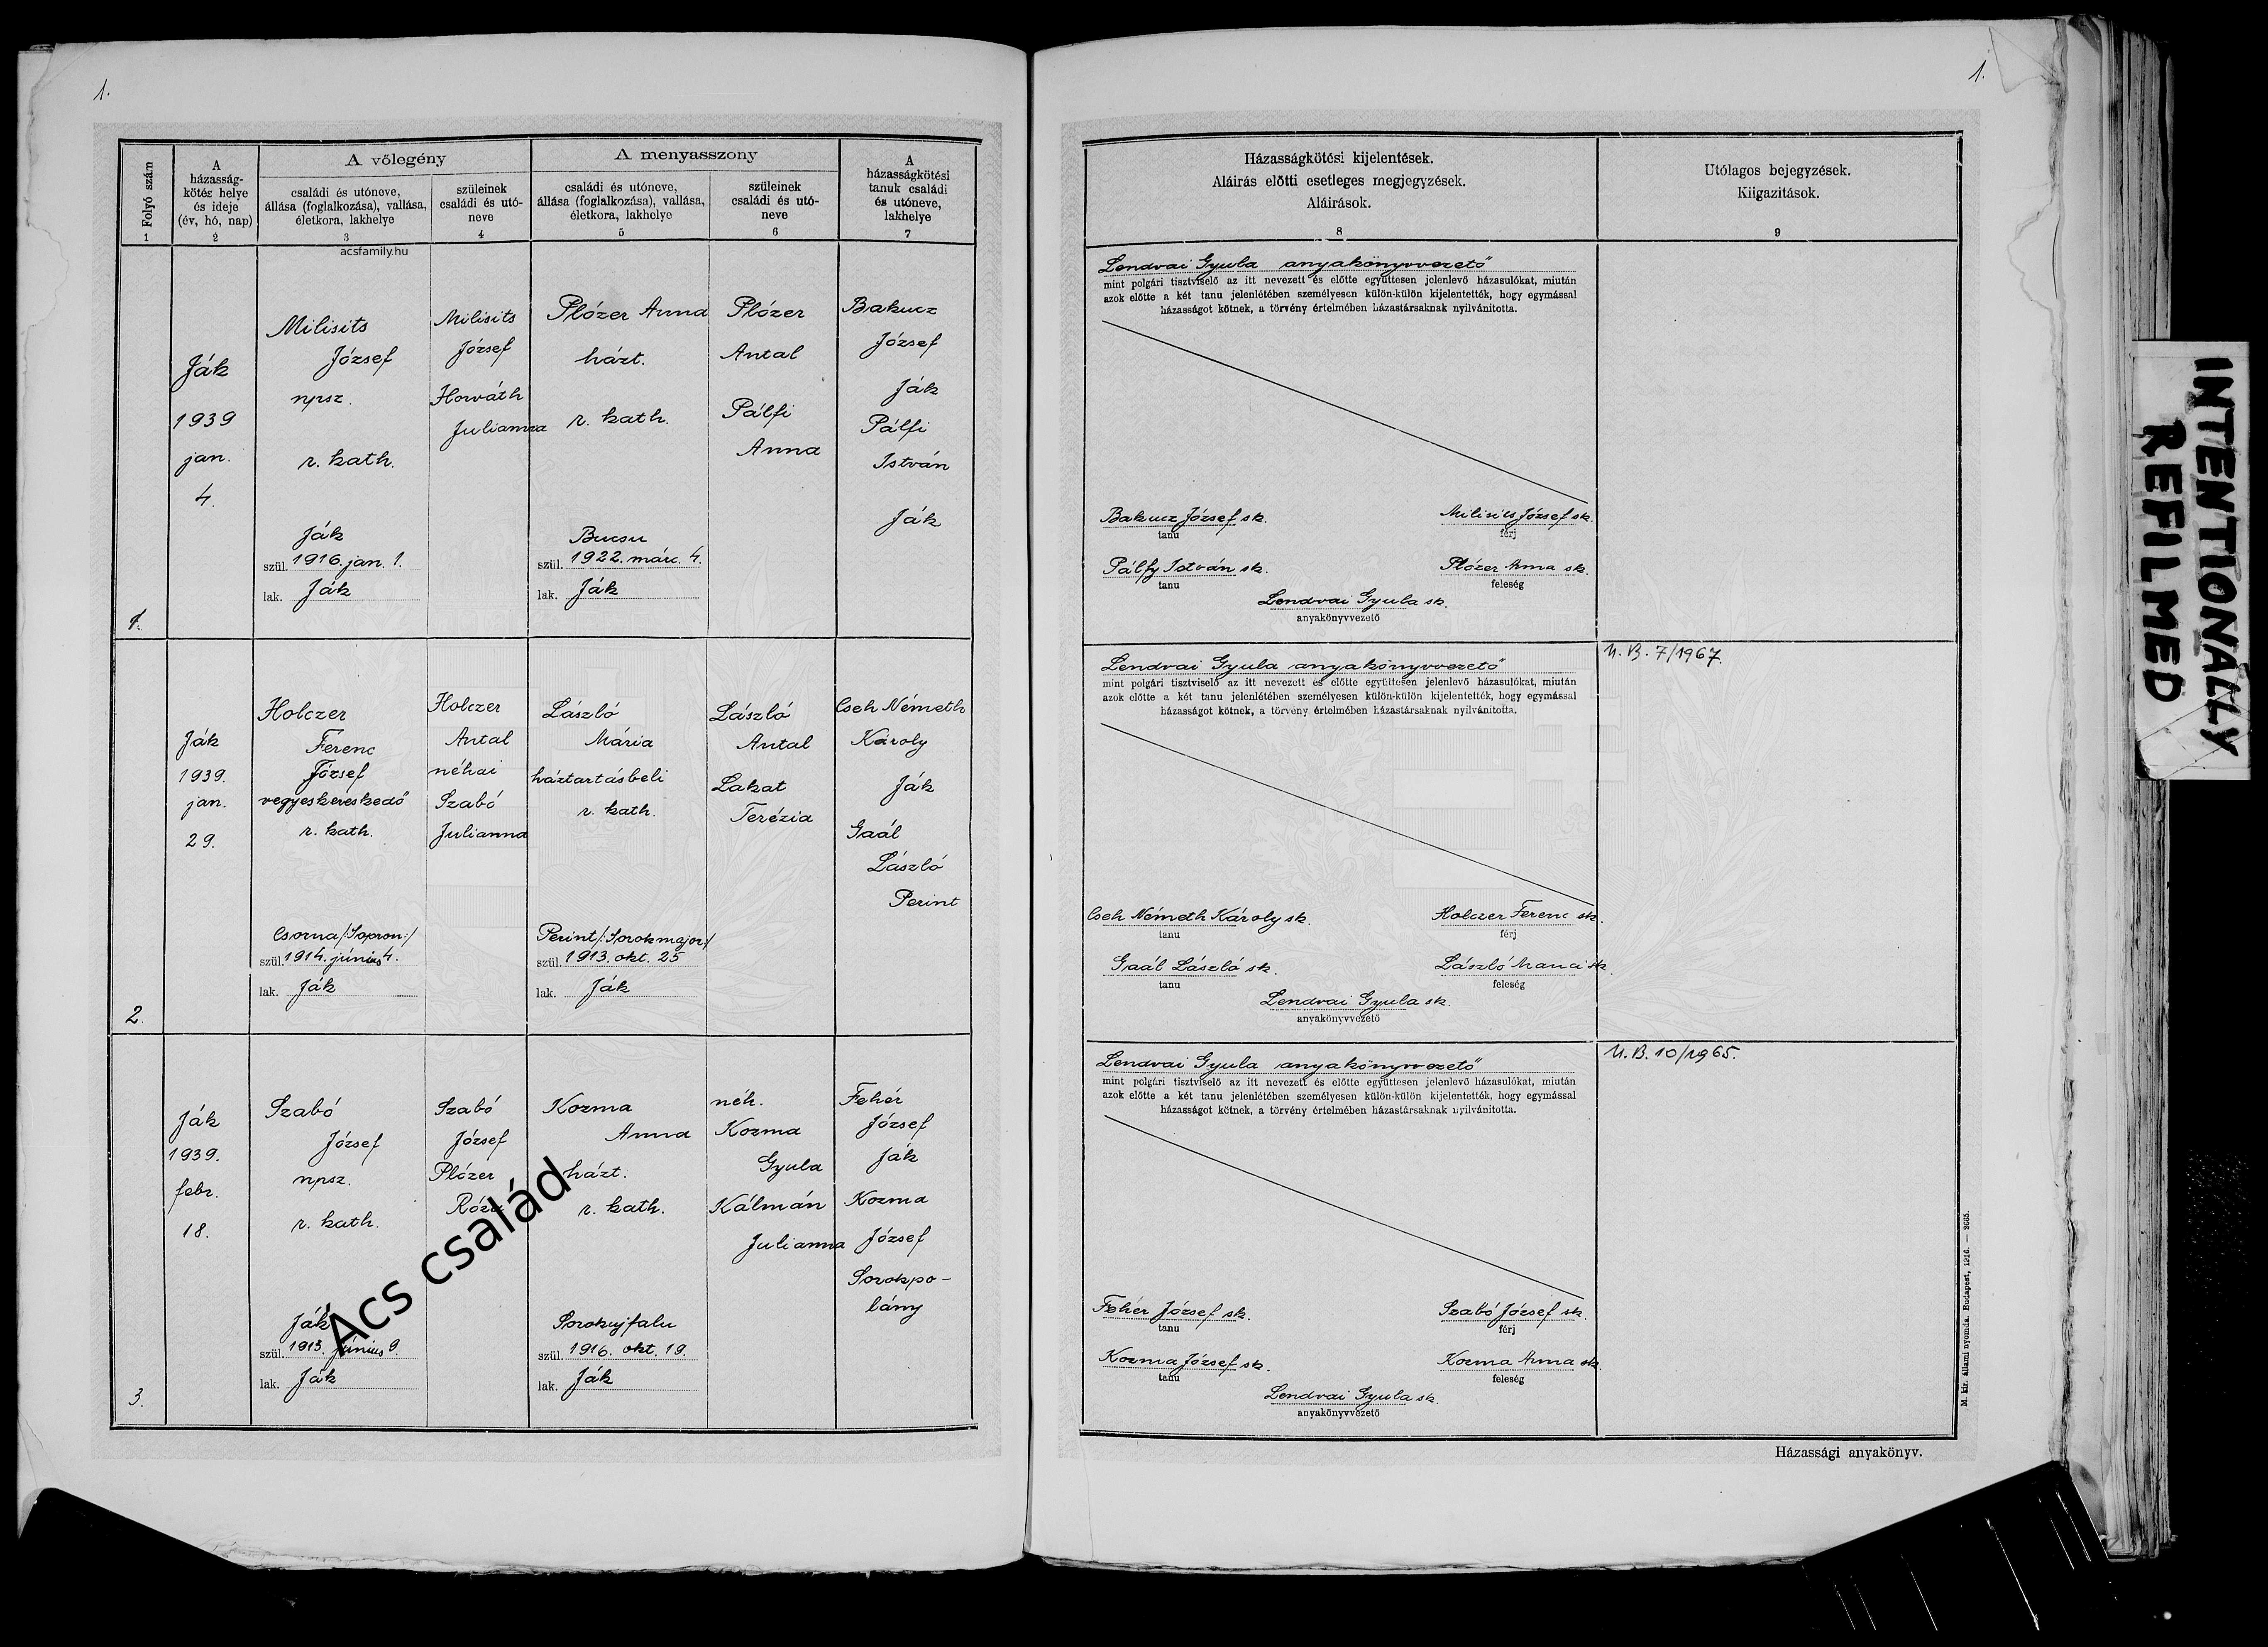 1.
1.
Folyó szám
1
A
házasság-
kötés helye
és ideje
(év, hó, nap)
2
A vőlegény
családi és utóneve,
állása (foglalkozása), vallása,
életkora, lakhelye
3
szüleinek
családi és utó-
neve
4
A menyasszony
családi és utóneve,
állása (foglalkozása), vallása,
életkora, lakhelye
5
szüleinek
családi és utó-
neve
6
A
házasságkötési
tanuk családi
és utóneve,
lakhelye
7
Házasságkötési kijelentések.
Aláirás előtti esetleges megjegyzések.
Aláirások.
8
Utólagos bejegyzések.
Kiigazitások.
9
acsfamily.hu
1.
Ják
1939
jan.
4.
Milisits
József
npsz.
r. kath.
Ják
szül. 1916. jan. 1.
lak. Ják
Milisits
József
Horváth
Julianna
Plózer Anna
házt.
r. kath.
Bucsu
szül. 1922. márc. 4.
lak. Ják
Plózer
Antal
Pálfi
Anna
Bakucz
József
Ják
Pálfi
István
Ják
Lendvai Gyula anyakönyvvezető
mint polgári tisztviselő az itt nevezett és előtte együttesen jelenlevő házasulókat, miután
azok előtte a két tanu jelenlétében személyesen külön-külön kijelentették, hogy egymással
házasságot kötnek, a törvény értelmében házastársaknak nyilvánitotta.
Bakucz József sk.
tanu
Milisits József sk.
férj
Pálfy István sk.
tanu
Plózer Anna sk.
feleség
Lendvai Gyula sk.
anyakönyvvezető
2.
Ják
1939.
jan.
29.
Holczer
Ferenc
József
vegyeskereskedő
r. kath.
Csorna /:Sopron:/
szül. 1914. június 4.
lak. Ják
Holczer
Antal
néhai
Szabó
Julianna
László
Mária
háztartásbeli
r. kath.
Perint /:Sorokmajor:/
szül. 1913. okt. 25
lak. Ják
László
Antal
Lakat
Terézia
Cseh Németh
Károly
Ják
Gaál
László
Perint
Lendvai Gyula anyakönyvvezető
mint polgári tisztviselő az itt nevezett és előtte együttesen jelenlevő házasulókat, miután
azok előtte a két tanu jelenlétében személyesen külön-külön kijelentették, hogy egymással
házasságot kötnek, a törvény értelmében házastársaknak nyilvánitotta.
Cseh Németh Károly sk.
tanu
Holczer Ferenc sk.
férj
Gaál László sk.
tanu
László Manci sk.
feleség
Lendvai Gyula sk.
anyakönyvvezető
U. B. 7/1967.
3.
Ják
1939.
febr.
18.
Szabó
József
npsz.
r. kath.
Ják
szül. 1913. június 9.
lak. Ják
Szabó
József
Plózer
Kozma
Anna
házt.
r. kath.
Sorokujfalu
szül. 1916. okt. 19.
lak. Ják
néh.
Kozma
Gyula
Kálmán
Julianna
Fehér
József
Ják
Kozma
József
Sorokpo-
lány
Lendvai Gyula anyakönyvvezető
mint polgári tisztviselő az itt nevezett és előtte együttesen jelenlevő házasulókat, miután
azok előtte a két tanu jelenlétében személyesen külön-külön kijelentették, hogy egymással
házasságot kötnek, a törvény értelmében házastársaknak nyilvánitotta.
Fehér József sk.
tanu
Szabó József sk.
férj
Kozma József sk.
tanu
Kozma Anna sk.
feleség
Lendvai Gyula sk.
anyakönyvvezető
U. B. 10/1965.
Ács család
M. kir. állami nyomda. Budapest, 1916. — 2665.
Házassági anyakönyv.
INTENTIONALLY
REFILMED